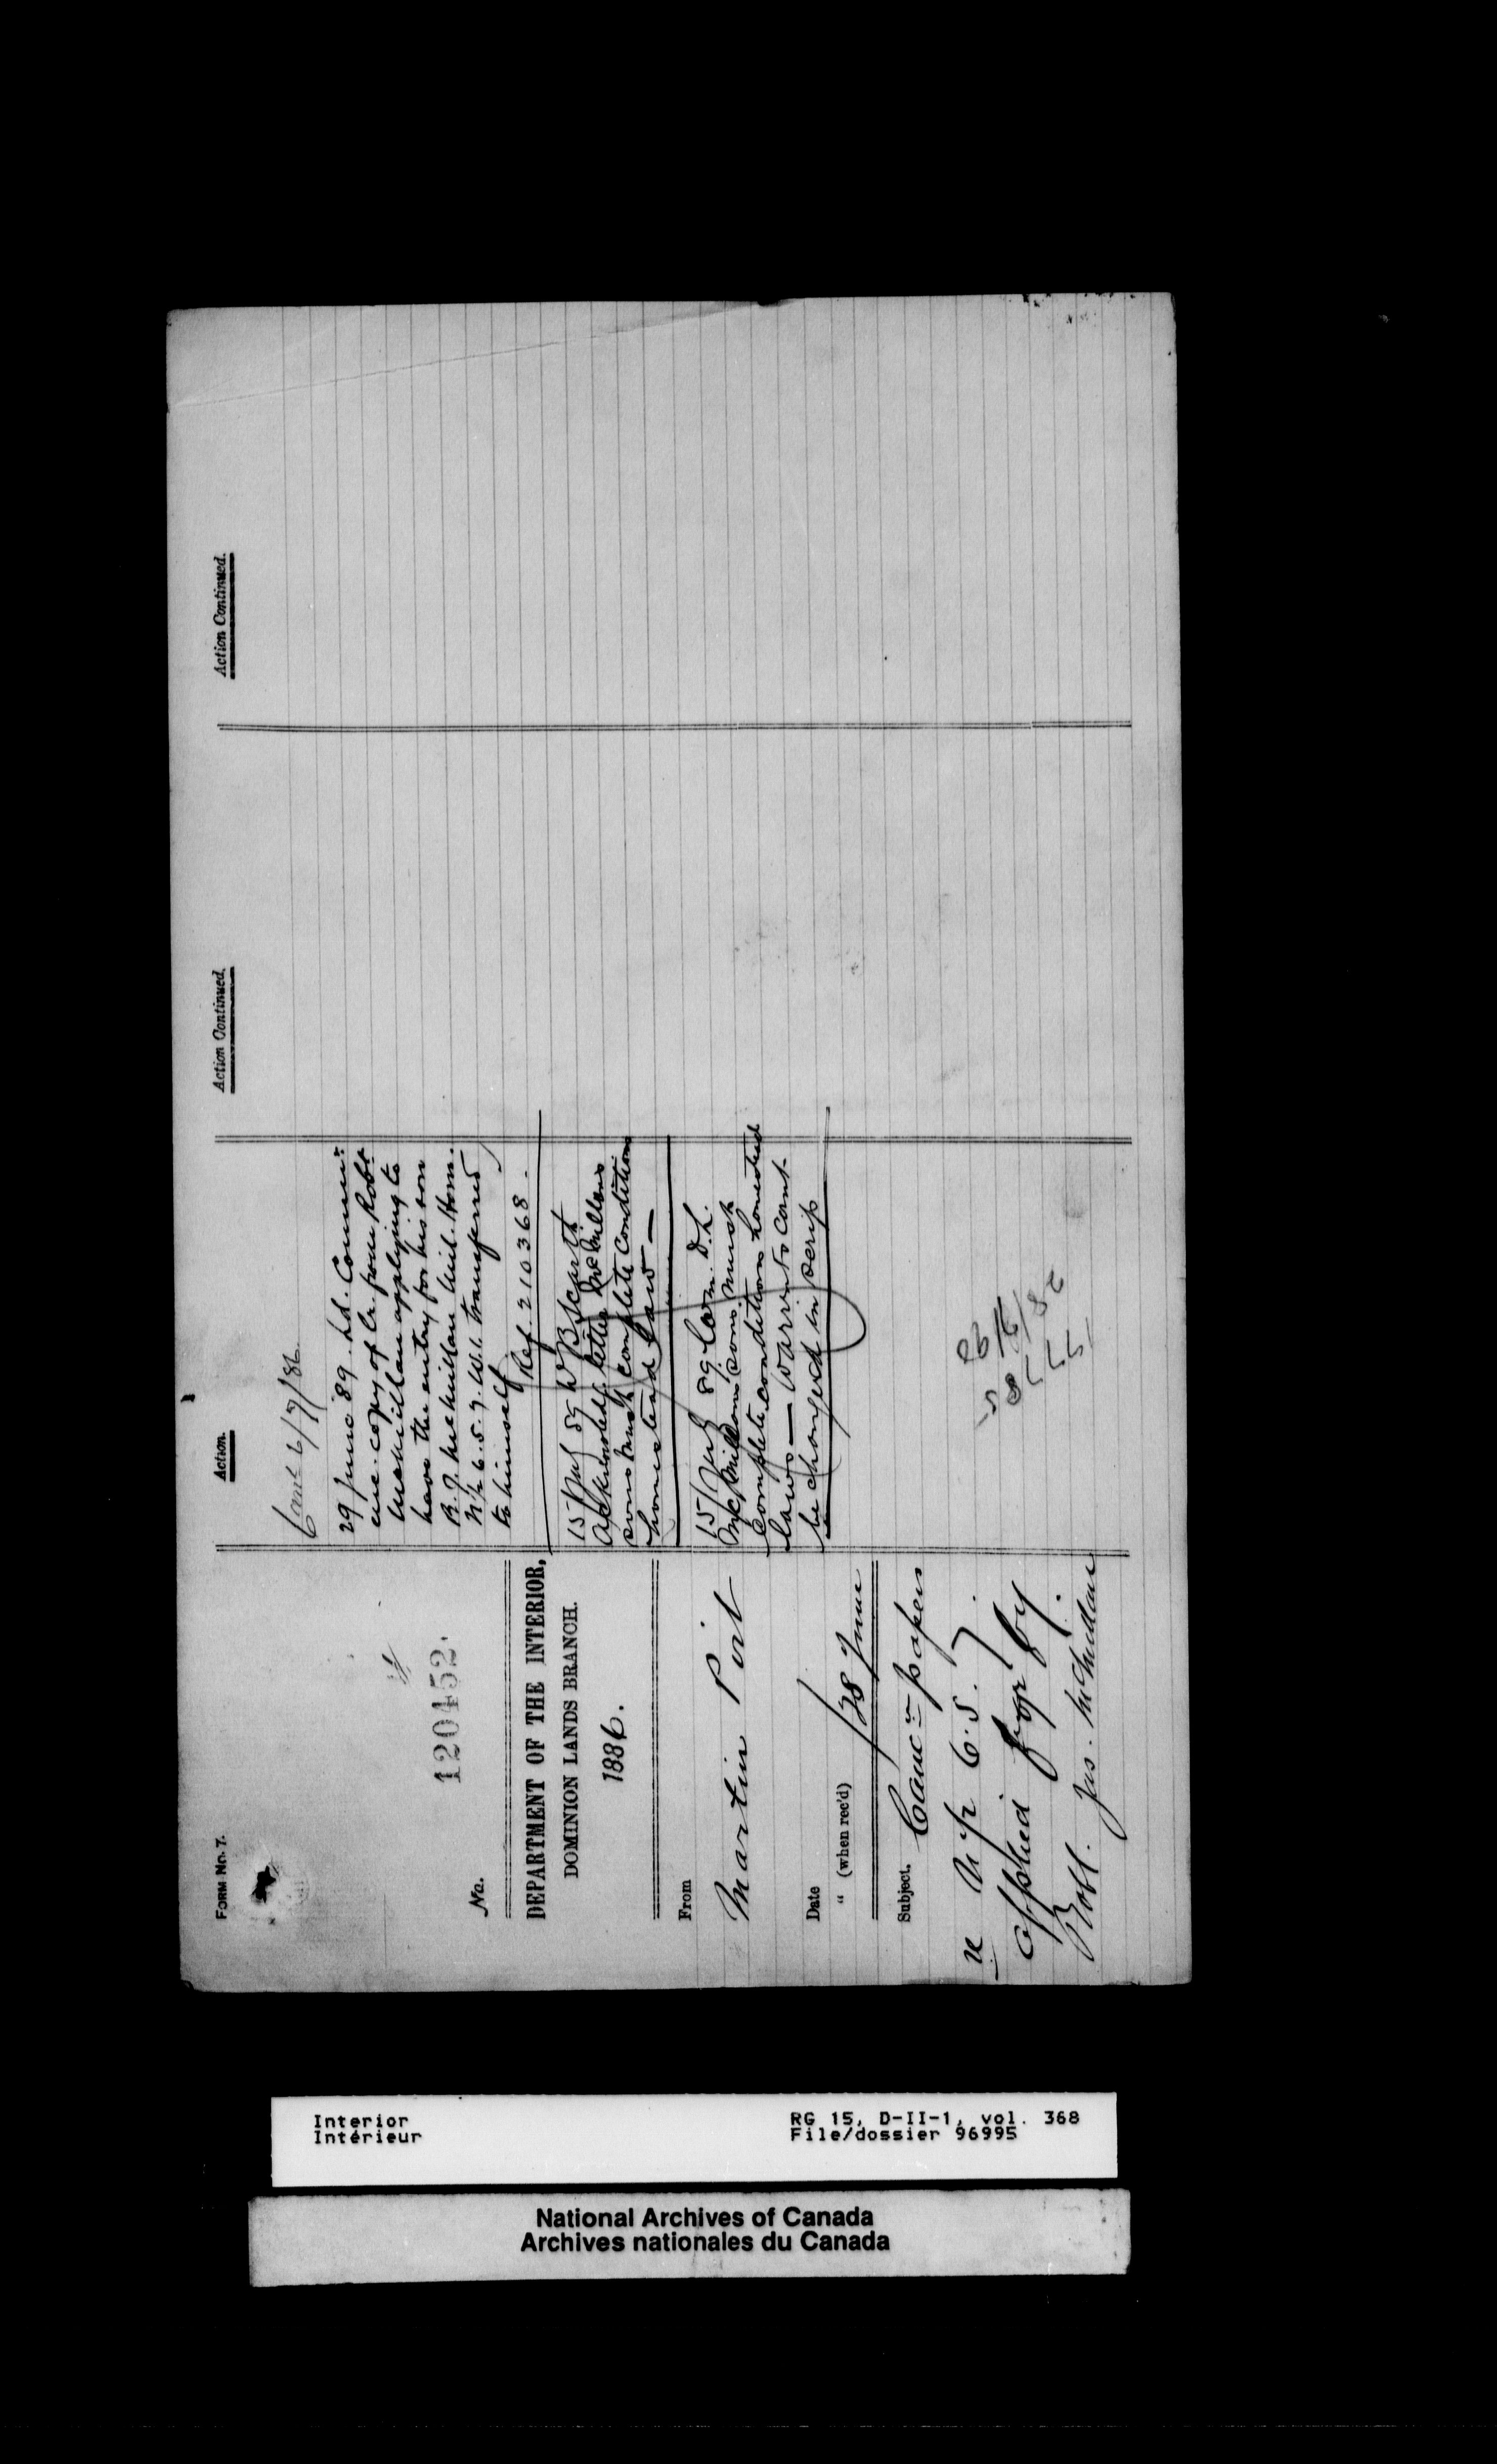 FORM No. 7.
120452.
No.
DEPARTMENT OF THE INTERIOR,
DOMINION LANDS BRANCH.
1886.
From
Martin Pirt
Date
" (when rec'd) 28 June
Subject. Canc=n papers
N 1/2 6.5.7.
applied for by
Robt. Jas. McMillan
Action.
6/7/86
29 June '89. Ld. Commr.
enc. copy of lr. from Robt
McMillan applying to
have the entry for his son
R.J. McMillan Mil. Hom.
N 1/2 6.5.7.W.1. transferred
to himself
Ref. 210368.
15/July 89 W B Scarth
Acknowledg. letter McMillans
sons must complete conditions
homestead law —
15/July 89 Com. D.L.
McMillans sons must
complete conditions homestead
laws — Warrants cant
be changed in scrip
Action Continued.
Action Continued.
Interior
Intérieur
RG 15, D-II-1, vol. 368
File/dossier 96995
National Archives of Canada
Archives nationales du Canada